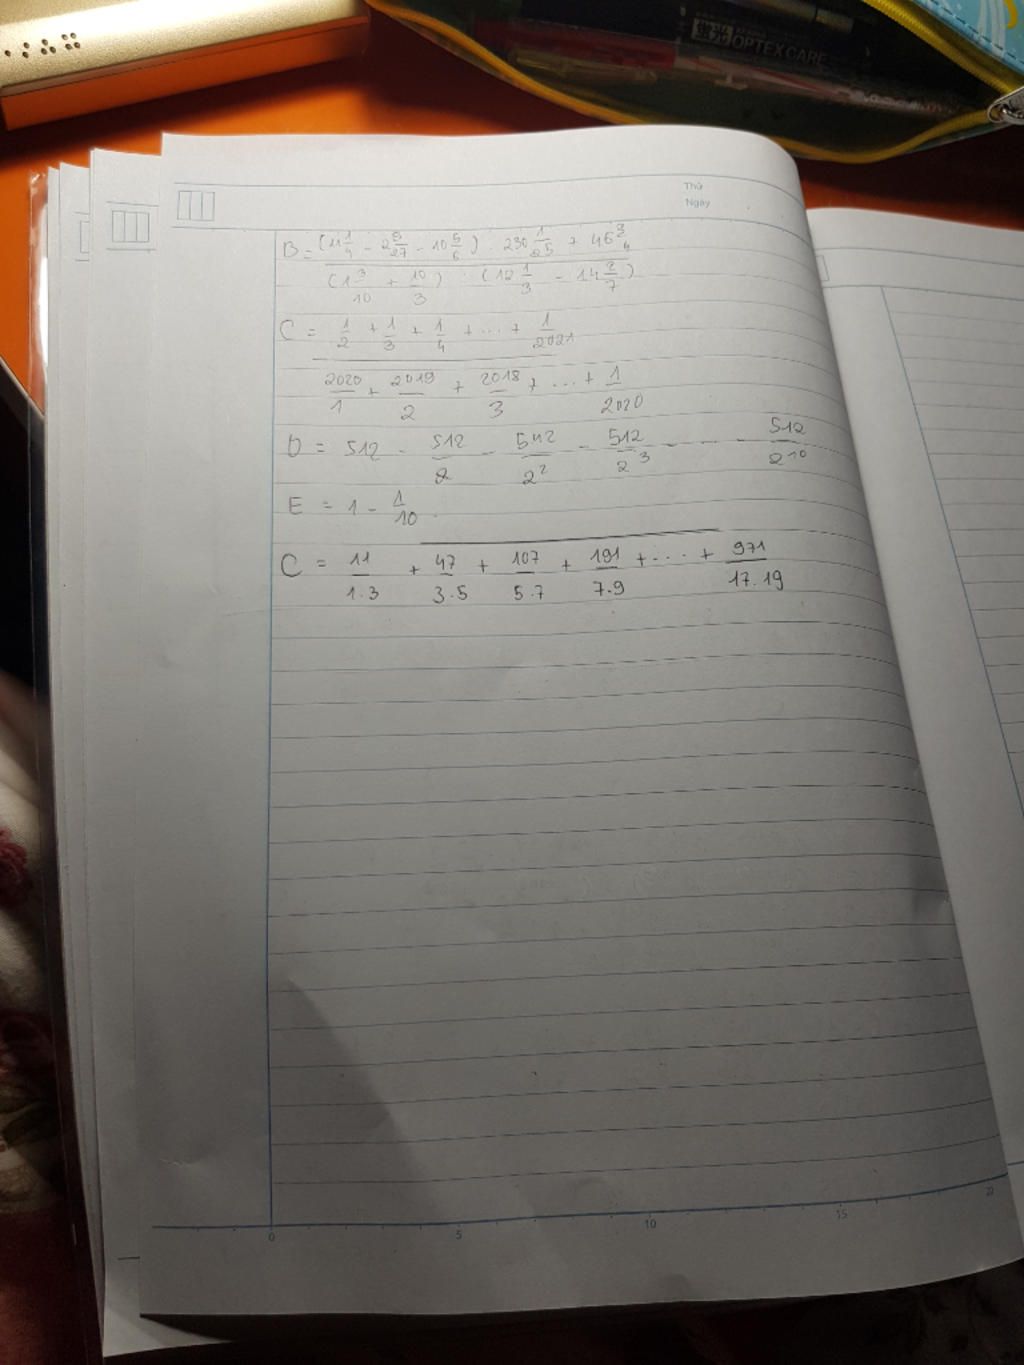 OPTEX CARE
Thứ
Ngày
B = (11 1/4 - 2 5/27 - 10 5/6) . 230 1/25 + 46 3/4
(1 3/10 + 10/3) : (12 1/3 - 14 2/7)
C = 1/2 + 1/3 + 1/4 + ... + 1/2021
2020/1 + 2019/2 + 2018/3 + ... + 1/2020
D = 512 - 512/2 - 512/2² - 512/2³ - ... - 512/2¹⁰
E = 1 - 1/10
C = 11/1.3 + 47/3.5 + 107/5.7 + 191/7.9 + ... + 971/17.19
0 5 10 15 20